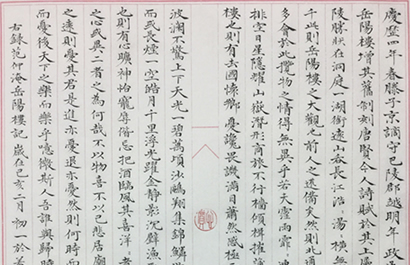 慶曆四年春滕子京謫守巴陵郡越明年政
岳陽樓增其舊制刻唐賢今人詩賦於其上
陵勝狀在洞庭一湖銜遠山吞長江浩〻湯〻橫無
千此則岳陽樓之大觀也前人之述備矣然則北
多會於此攬物之情得無異乎若夫霪雨霏
排空日星隱耀山嶽潛形商旅不行檣傾楫摧
樓也則有去國懷鄉憂讒畏譏滿目蕭然感極
波瀾不驚上下天光一碧萬頃沙鷗翔集錦鱗
而或長煙一空皓月千里浮光躍金靜影沉璧漁
也則有心曠神怡寵辱偕忘把酒臨風其喜洋
之心或異二者之為何哉不以物喜不以己悲居廟
之遠則憂其君是進亦憂退亦憂然則何時而
而憂後天下之樂而樂乎噫微斯人吾誰與歸時
右錄范仲淹岳陽樓記 歲在己亥二月初一於